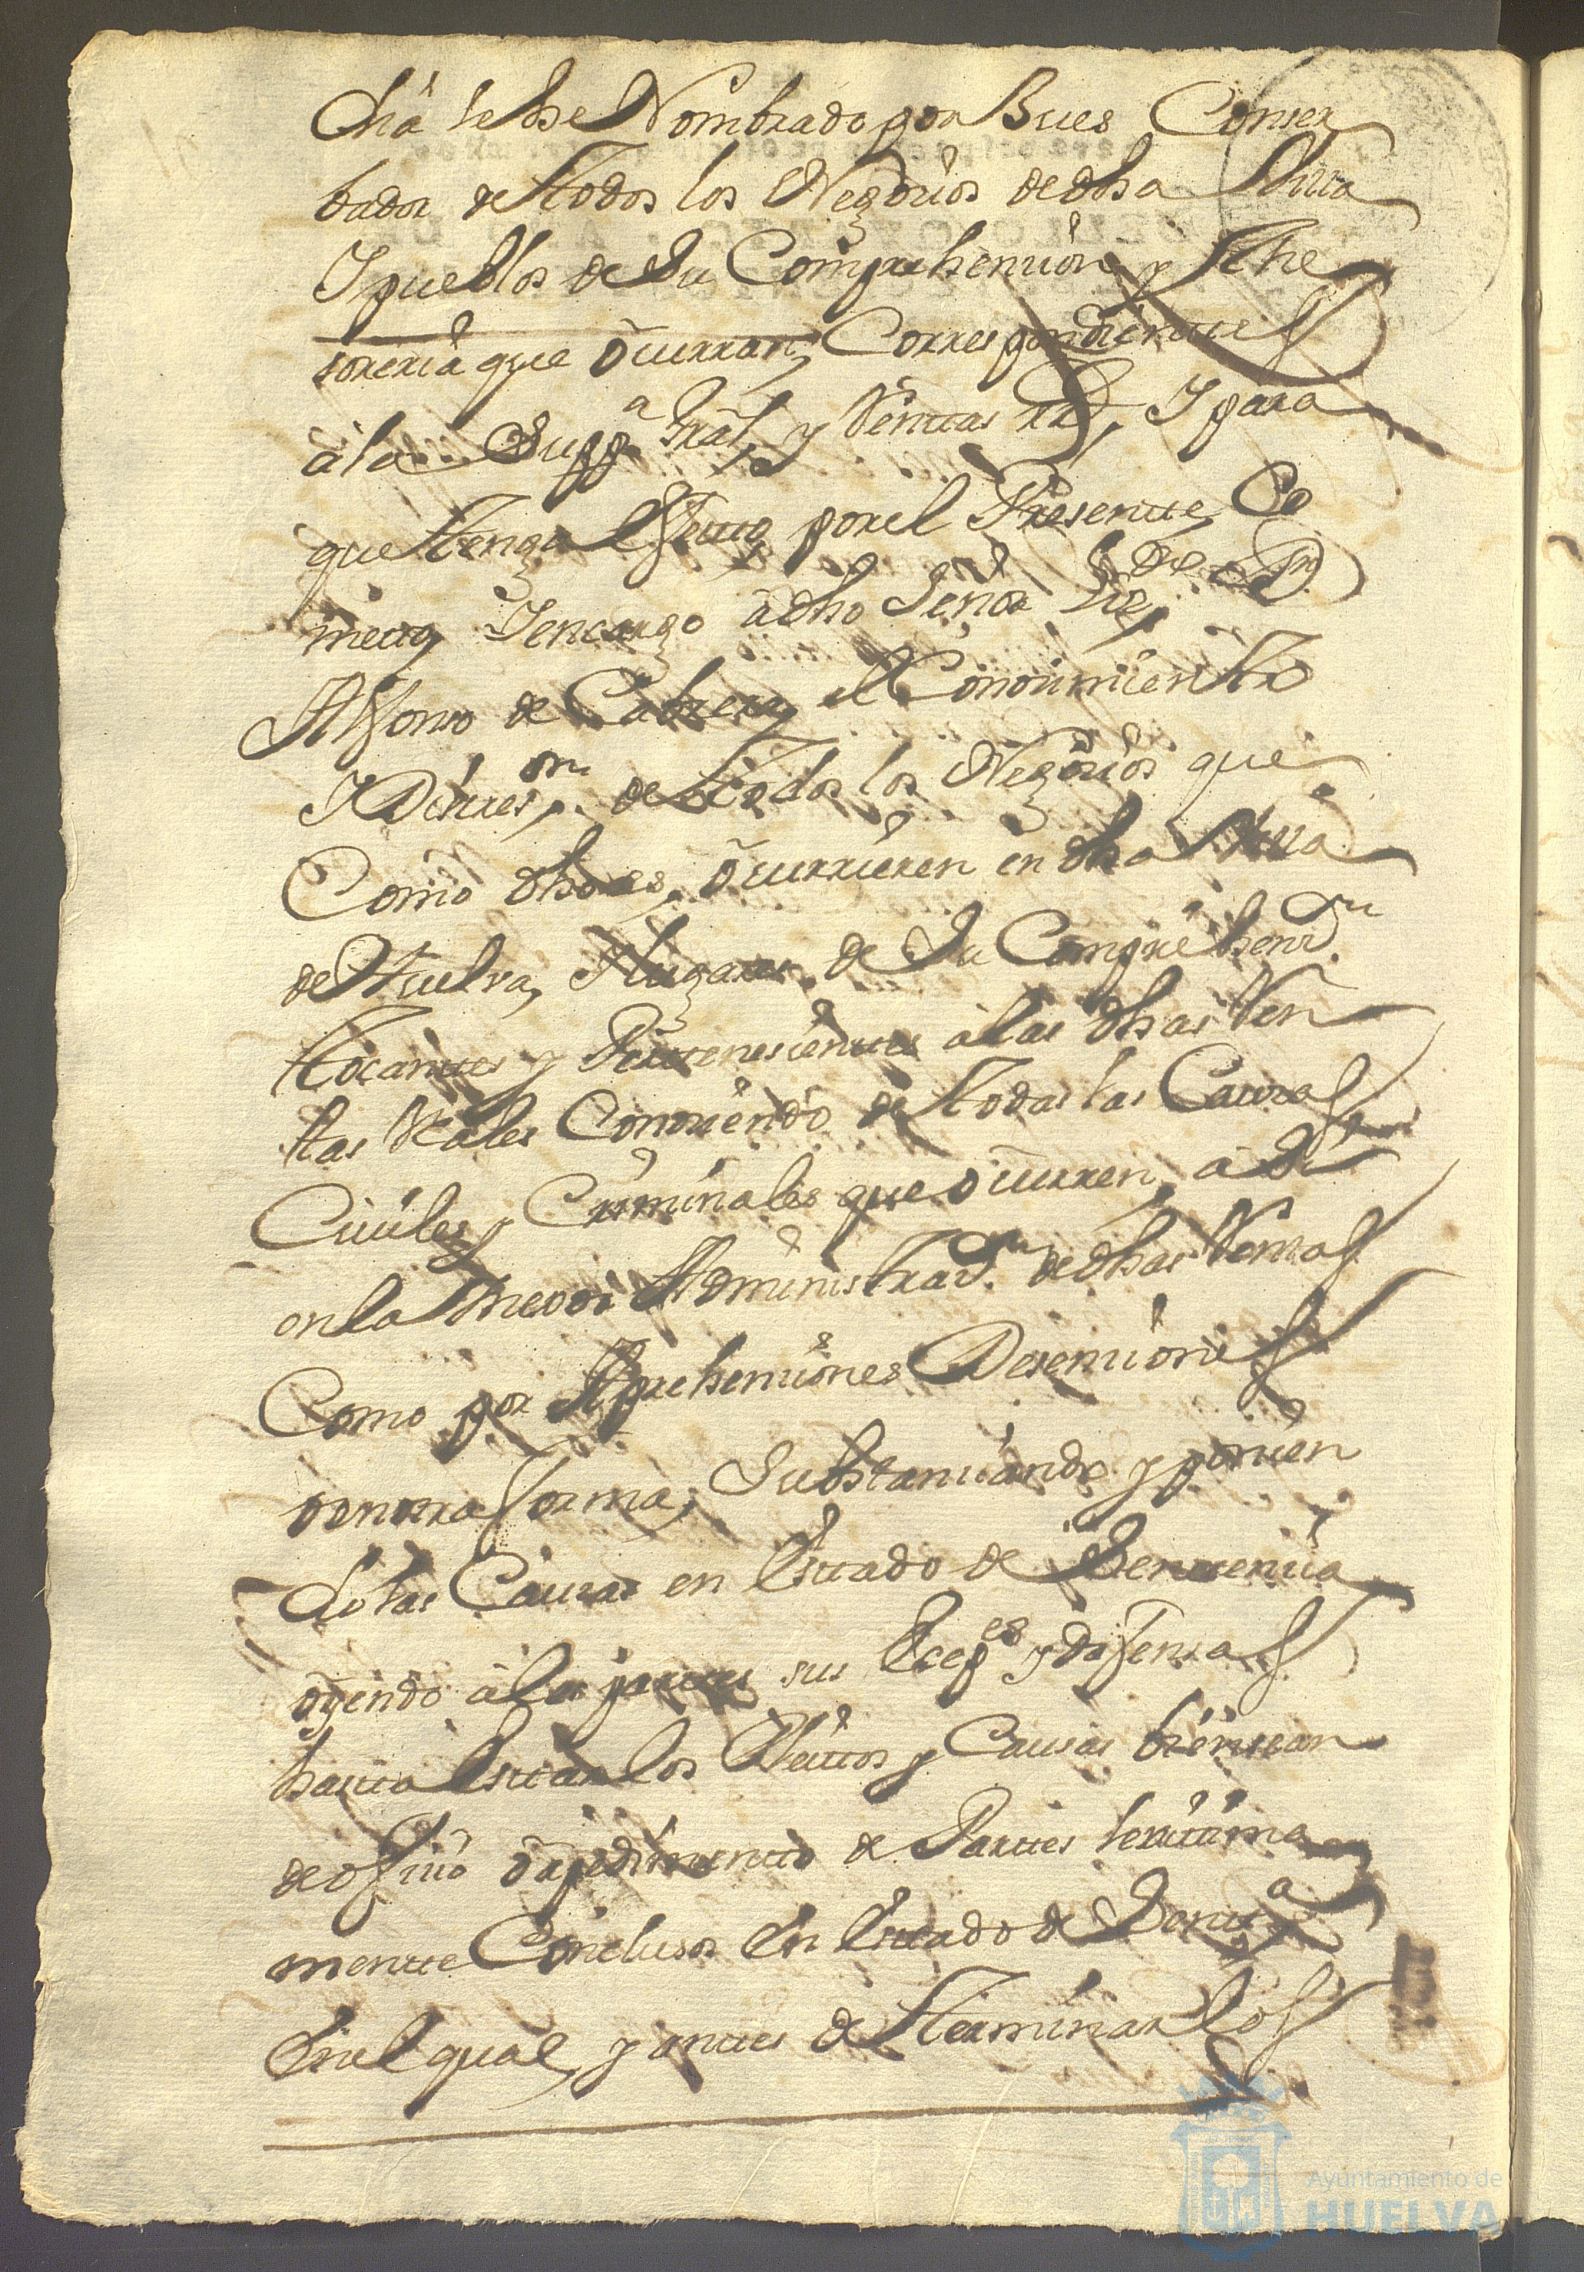 Chã le he Nombrado por Jues Conser
bador de todos los Negocios de dha Villa
I pueblos de Su Comprehencion y The
soreria que ocurran, Correspondientes
à la Supp.a Gral, y Rentas Rs, I para
que tenga efecto, por el Presente, Co
meto, I encargo à dho Señor Liz.do Dn
Alfonso de Cabrera, el Conocimiento
I Direcs.on de todos los Negocios que
Como dho es, ocurrieren en dha Villa
de Huelva, I lugares de Su Comprehens.n
tocantes y Pertenesientes à las dhas Ren
tas Rales Conociendo de todas las Causas
Civiles, y Criminales que ocurren, à Si
en la Mexor Administraz.n de dhas Rentas
Como por Aprehenciones Desenciones
o en otra forma, Substanciando y ponien
do las Causas en Estado de Sentencia
oyendo à las partes sus Ecep.es y defensas
hasta Estar los Pleitos y Causas bien sean
de oficio o a pedimento de Partes lexitima
mente Conclusos En Estado de Sent.a
En el qual, y antes de terminarlos
Ayuntamiento de
HUELVA